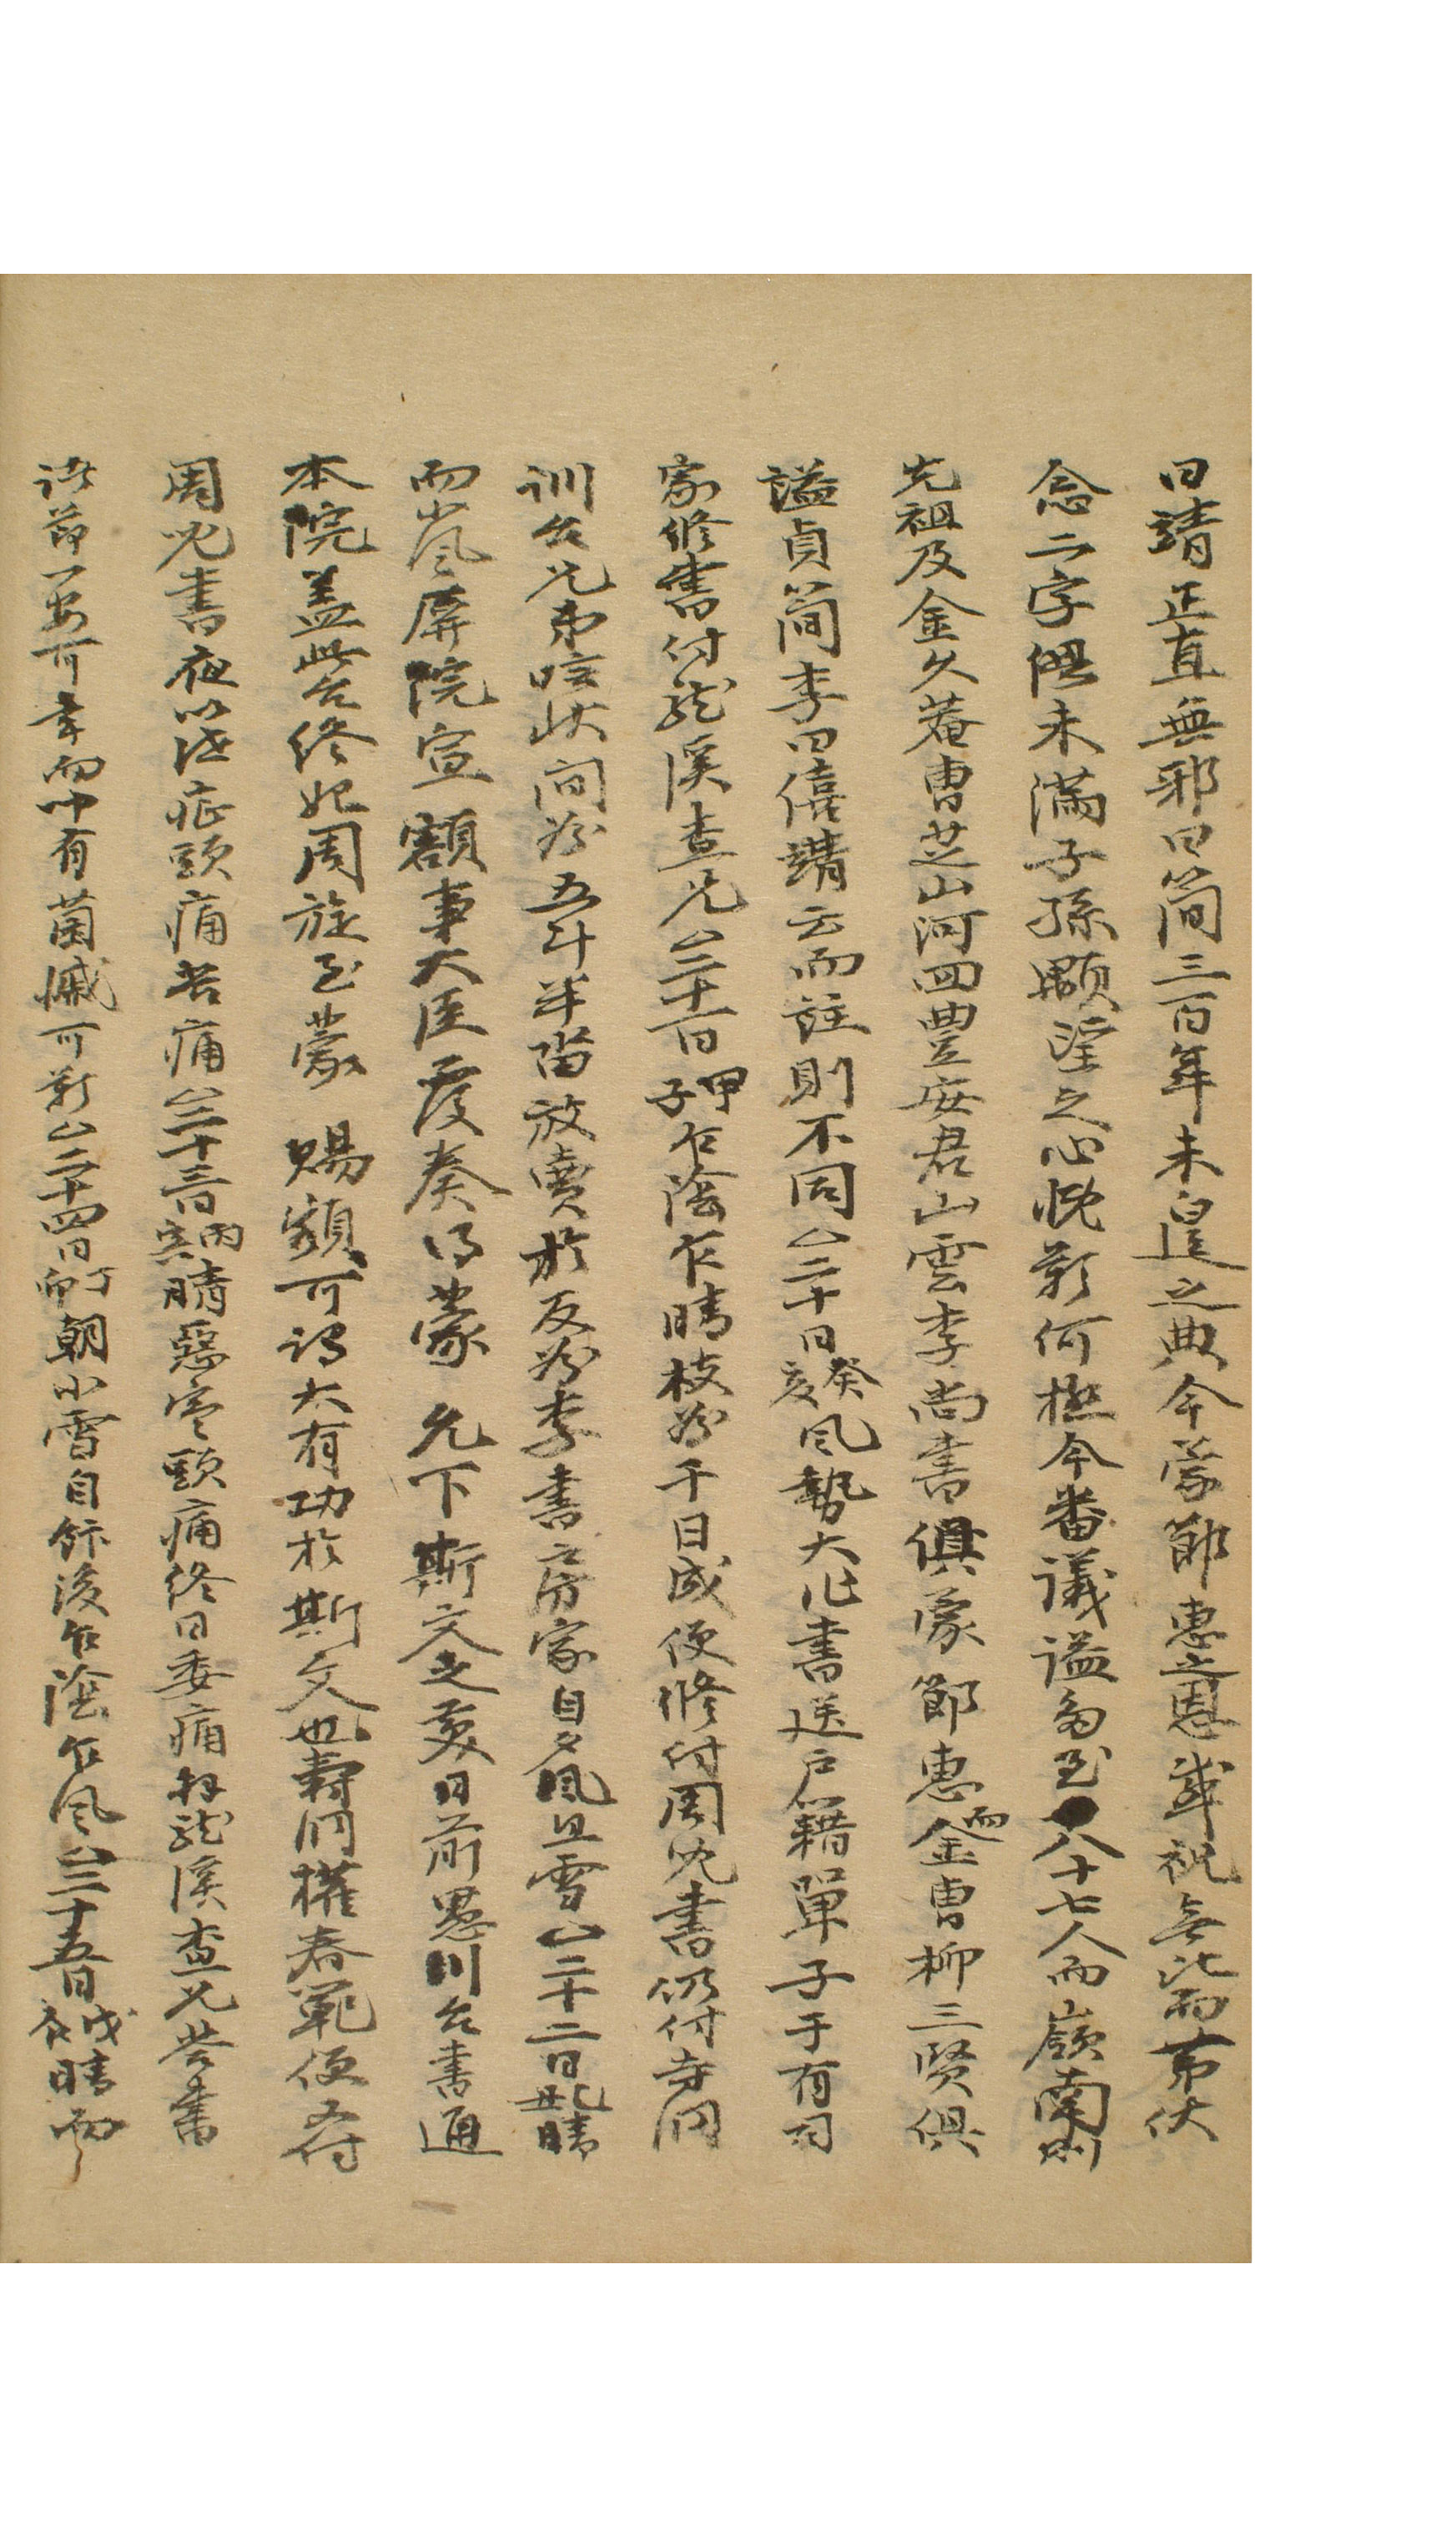 曰靖正直無邪曰簡三百年未遑之典今蒙節惠之恩感祝無比而第伏
念二字俱未滿子孫顒望之心悅歎何極今番議謚多至八十七人而嶺南則
先祖及金久菴曺芝山河四豊安君山雲李尙書俱蒙節惠而金曺柳三賢俱
謚貞簡李曰僖靖云而註則不同△二十日癸亥風勢大作書送戶籍單子于有司
家修書付龍溪査兄△二十一日甲子乍陰乍晴枝谷千日成便修付周兒書仍付寺洞
訓台兄弟唁狀間谷五斗半畓放賣於反谷李書房家自夕風且雪△二十二日乙丑晴
而嵐屛院宣額事大臣覆奏得蒙 允下斯文之慶日前愚川台書通
本院盖此台終始周旋至蒙 賜額可謂大有功於斯文也壽洞權春範便 付
周兒書夜以泄症頭痛苦痛△二十三日丙寅晴惡寒頭痛終日委痛拜龍溪査兄答書
諸節一安可幸而中有菌慽可歎△二十四日丁卯朝小雪自飯後乍陰乍風△二十五日戊辰晴而